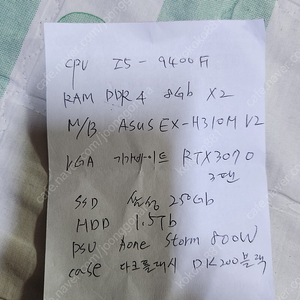 CPU I5 - 9400F
RAM DDR4 8Gb X2
M/B ASUS EX-H310M V2
VGA 기가바이트 RTX3070
3팬
SSD 삼성 250Gb
HDD 1.5Tb
PSU Aone Storm 800W
case 다크플래시 DK200 블랙